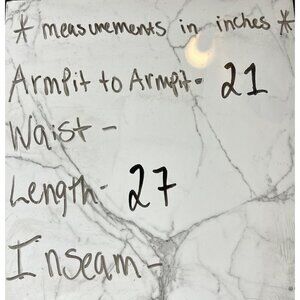 * measurements in inches *
Armpit to Armpit- 21
Waist -
Length- 27
Inseam -